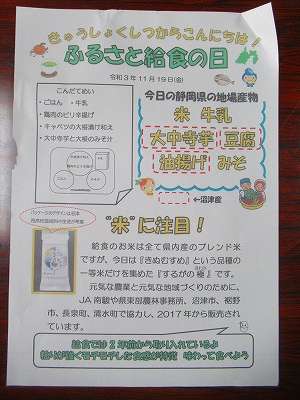 きゅうしょくしつからこんにちは！
ふるさと給食の日
令和3年11月19日(金)
こんだてめい
・ごはん ・牛乳
・鶏肉のピリ辛揚げ
・キャベツの大根漬け和え
・大中寺芋と大根のみそ汁
今日の静岡県の地場産物
米 牛乳
大中寺芋 豆腐
油揚げ みそ
←沼津産
"米"に注目！
給食のお米は全て県内産のブレンド米
ですが、今日は『きぬむすめ』という品種の
一等米だけを集めた『するがの極』です。
元気な農業と元気な地域づくりのために、
JA南駿や県東部農林事務所、沼津市、裾野
市、長泉町、清水町で協力し、2017年から販売され
ています。
給食では2年前から取り入れているよ
粘りが強くモチモチした食感が特徴 味わって食べよう